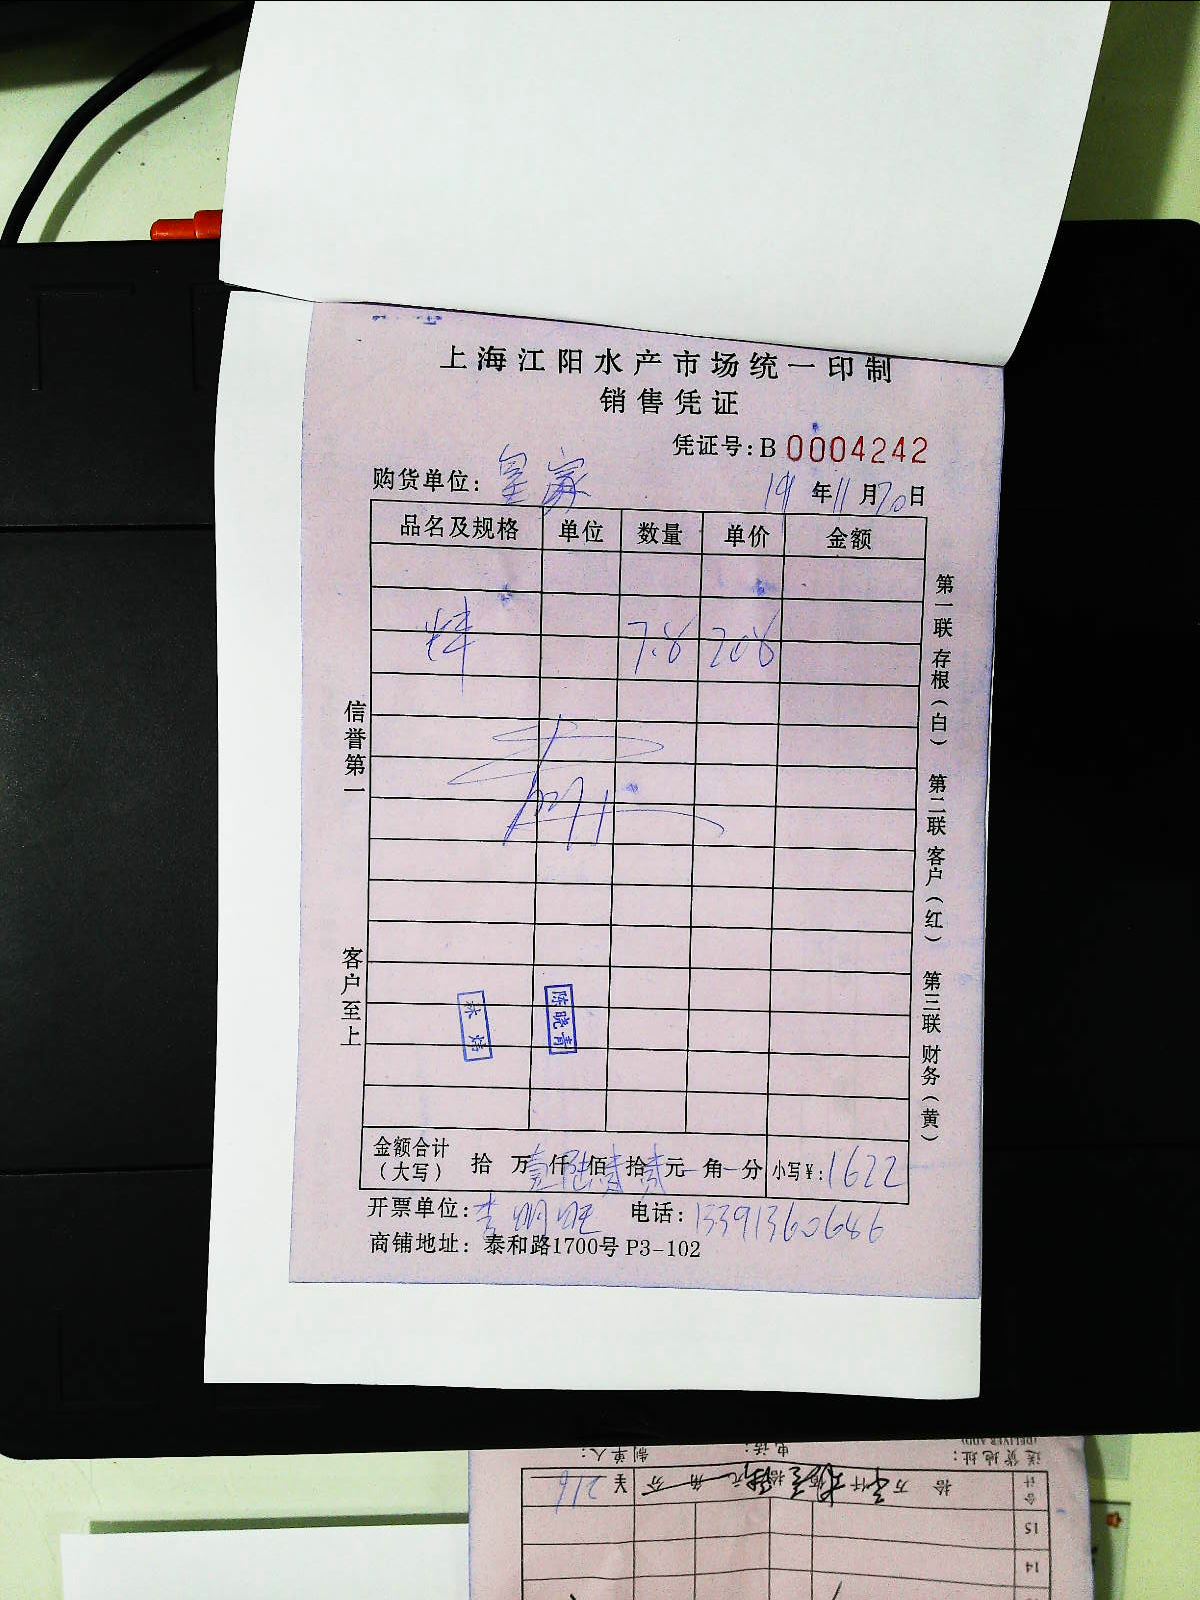 上海江阳水产市场统一印制
销售凭证
凭证号:B 0004242
购货单位: 皇家 19年11月20日
品名及规格 单位 数量 单价 金额
7.8 208
信誉第一
客户至上
第一联 存根(白) 第二联 客户(红) 第三联 财务(黄)
陈晓青
金额合计(大写) 拾 万壹仟陆佰贰拾贰元 角 分 小写¥:1622
开票单位: 李明旺 电话: 15391360686
商铺地址: 泰和路1700号 P3-102
送货地址: 电话: 制单人:
(DELIVER ADD)
合计 拾 万 仟 佰 拾 元 角 分 ¥ 216
15
14